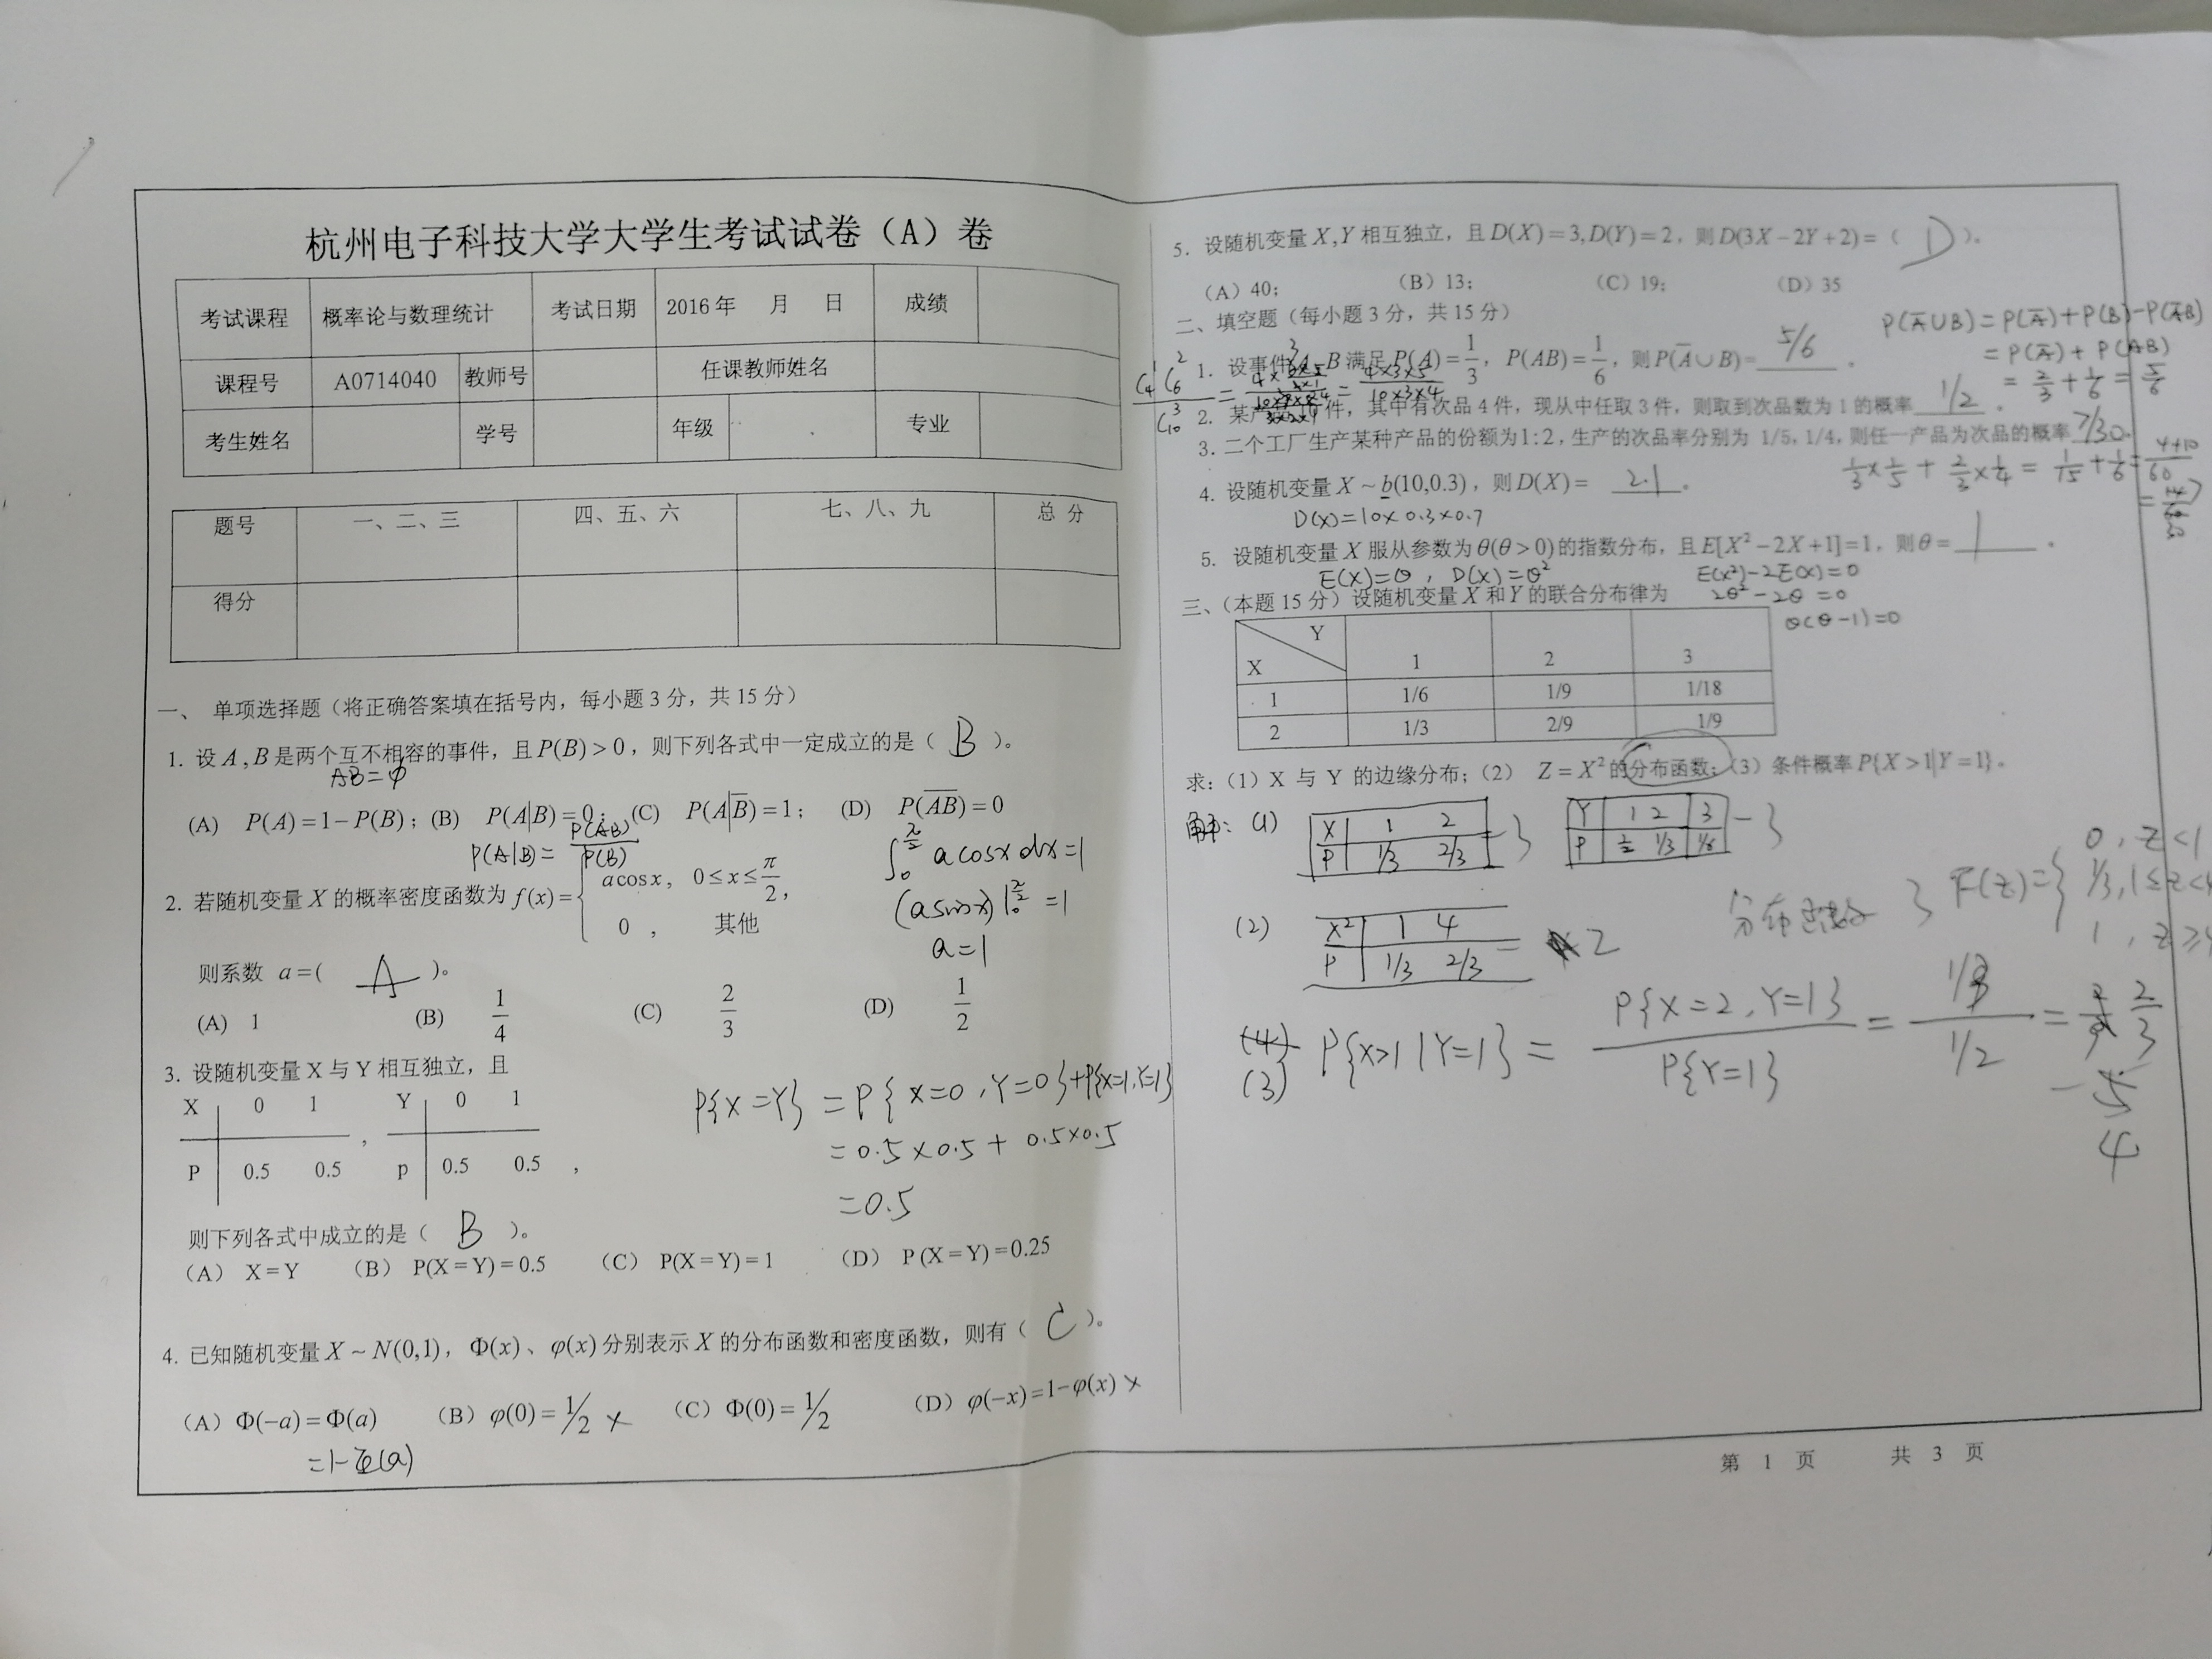 杭州电子科技大学大学生考试试卷（A）卷
考试课程 概率论与数理统计 考试日期 2016年 月 日 成绩
课程号 A0714040 教师号 任课教师姓名
考生姓名 学号 年级 专业
题号 一、二、三 四、五、六 七、八、九 总 分
得分
一、 单项选择题（将正确答案填在括号内，每小题3分，共15分）
1. 设A,B是两个互不相容的事件，且P(B)>0，则下列各式中一定成立的是（ B ）。
AB=ϕ
(A) P(A)=1−P(B)；(B) P(A|B)=0；(C) P(A|B̅)=1； (D) P(A̅B̅)=0
P(A|B)=P(AB)/P(B)
2. 若随机变量X的概率密度函数为f(x)={ acosx, 0≤x≤π/2,
0 , 其他
∫₀^(π/2) acosx dx=1
(asinx)|₀^(π/2) =1
a=1
则系数 a=( A )。
(A) 1 (B) 1/4 (C) 2/3 (D) 1/2
3. 设随机变量X与Y相互独立，且
X 0 1 Y 0 1
P 0.5 0.5 , p 0.5 0.5 ,
P{X=Y} = P{X=0,Y=0}+P{X=1,Y=1}
=0.5×0.5+0.5×0.5
=0.5
则下列各式中成立的是（ B ）。
（A） X=Y （B） P(X=Y)=0.5 （C） P(X=Y)=1 （D） P(X=Y)=0.25
4. 已知随机变量X~N(0,1)，Φ(x)、φ(x)分别表示X的分布函数和密度函数，则有（ C ）。
（A）Φ(−a)=Φ(a) （B）φ(0)=1/2 × （C）Φ(0)=1/2 （D）φ(−x)=1−φ(x) ×
=1-Φ(a)
5. 设随机变量X,Y相互独立，且D(X)=3,D(Y)=2，则D(3X−2Y+2)=（ D ）。
（A）40； （B）13； （C）19； （D）35
二、填空题（每小题3分，共15分）
P(A̅∪B)=P(A̅)+P(B)-P(A̅B)
=P(A̅)+P(AB)
=2/3+1/6=5/6
1. 设事件A、B满足P(A)=1/3，P(AB)=1/6，则P(A̅∪B)= 5/6 .
C₄¹C₆²/C₁₀³ = = 4×3×5/10×3×4
2. 某产品10件，其中有次品4件，现从中任取3件，则取到次品数为1的概率 1/2 .
3. 二个工厂生产某种产品的份额为1:2，生产的次品率分别为 1/5, 1/4，则任一产品为次品的概率 7/30.
1/3×1/5 + 2/3×1/4 = 1/15+1/6=4+10/60
4. 设随机变量X~b(10,0.3)，则D(X)= 2.1 .
D(X)=10×0.3×0.7
5. 设随机变量X服从参数为θ(θ>0)的指数分布，且E[X²−2X+1]=1，则θ= 1 .
E(X)=θ, D(X)=θ² E(X²)-2E(X)=0
2θ²-2θ=0
θ(θ-1)=0
三、（本题15分）设随机变量X和Y的联合分布律为
Y
X 1 2 3
1 1/6 1/9 1/18
2 1/3 2/9 1/9
求：(1) X 与 Y 的边缘分布；(2) Z=X²的分布函数；(3) 条件概率P{X>1|Y=1}。
解：(1) X 1 2 —3 Y 1 2 3 —3
P 1/3 2/3 P 1/2 1/3 1/6
(2) X² 1 4 — 2
P 1/3 2/3
分布函数 3 F(z)={ 0, z<1
1/3, 1≤z<4
1, z≥4
(3) P{X>1|Y=1} = P{X=2,Y=1}/P{Y=1} = 1/3 / 1/2 = 2/3
4
第 1 页 共 3 页